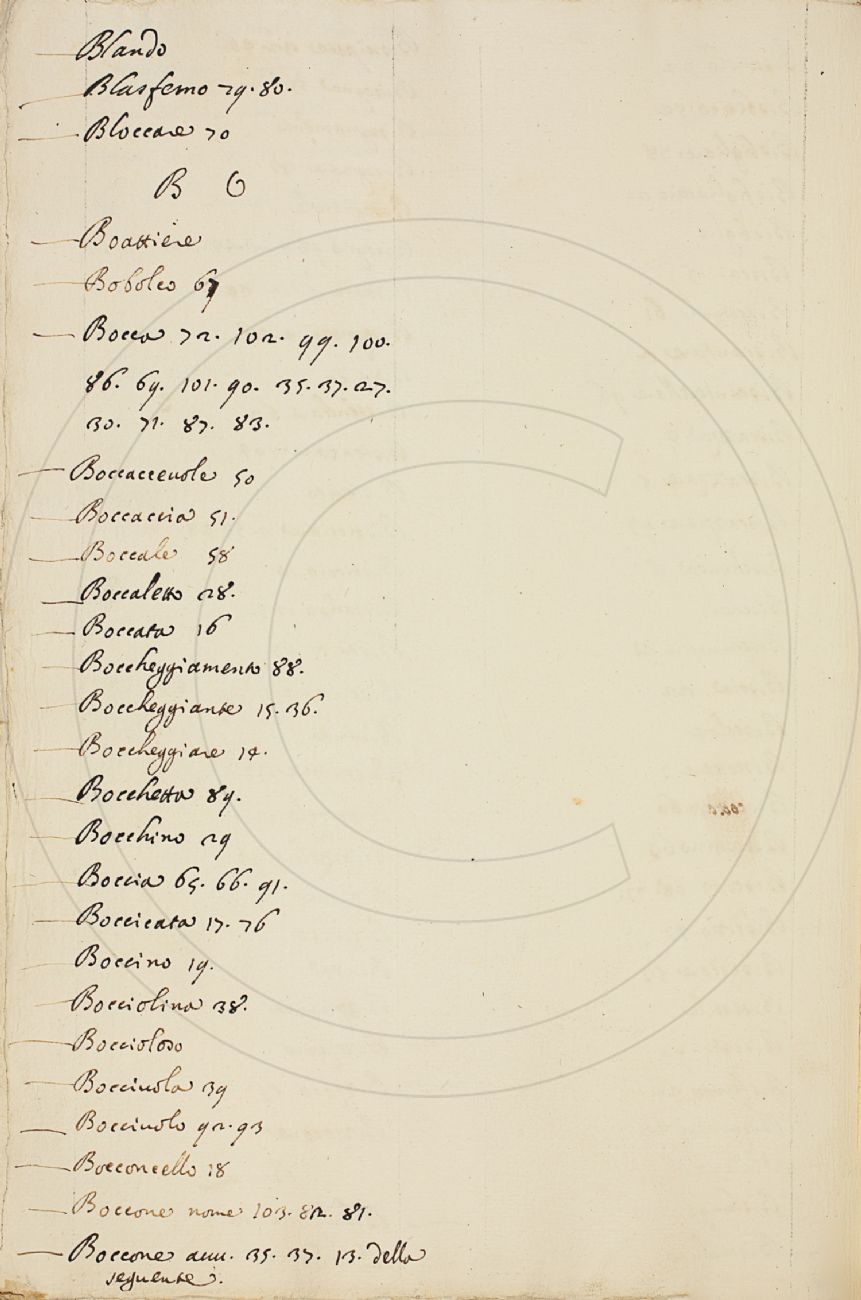 Blando
Blasfemo 79. 80.
Bloccare 70
B O
Boattiere
Bobolco 67
Bocca 72. 102. 99. 100.
86. 69. 101. 90. 35. 37. 27.
30. 71. 87. 83.
Boccaccevole 50
Boccaccia 51.
Boccale 58
Boccaletto 28.
Boccata 16
Boccheggiamento 88.
Boccheggiante 15. 36.
Boccheggiare 14.
Bocchetta 89.
Bocchino 29
Boccia 65. 66. 91.
Boccicata 17. 76
Boccino 19.
Bocciolina 38.
Boccioloso
Bocciuola 39
Bocciuolo 92. 93
Bocconcello 18
Boccone nome 103. 82. 81.
Boccone auu. 35. 37. 13. della
seguente.